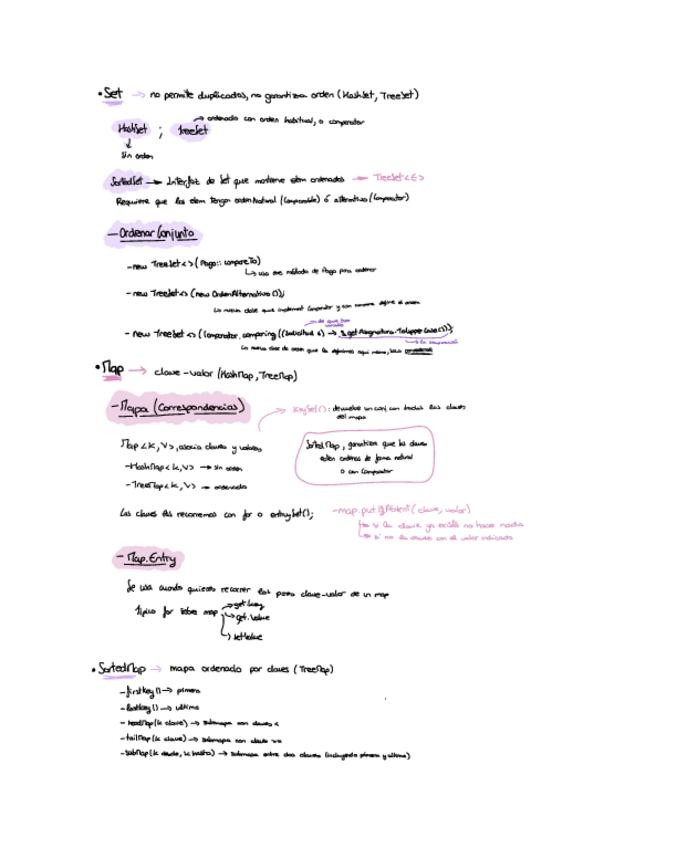 • Set → no permite duplicados, no garantiza orden (HashSet, TreeSet)
→ ordenado con orden habitual, o comparator
HashSet ; TreeSet
↓
sin orden
SortedSet → Interfaz de Set que mantiene elem ordenados → TreeSet<E>
Requiere que los elem tengan orden Natural (Comparable) ó alternativo (Comparator)
– Ordenar Conjunto
– new TreeSet<>(Pago::compareTo)
↳ usa ese método de Pago para ordenar
– new TreeSet<>(new OrdenAlternativo());
↳ nueva clase que implement Comparator y
– new TreeSet<>(Comparator.comparing((Solicitud s) → s.getAsignatura.ToUpperCase()));
• Map → clave-valor (HashMap, TreeMap)
– Mapa (Correspondencias)
→ KeySet(): devuelve un conj con todas las claves
del mapa
Map<K,V>, asocia claves y valores
– HashMap<K,V> → sin orden
– TreeMap<K,V> → ordenado
SortedMap, garantiza que las claves
estén ordenas de forma natural
o con Comparator
Las claves las recorremos con for o entrySet();
– map.putIfAbsent(clave, valor)
→ si la clave ya existe no hace nada
→ si no la añade con el valor indicado
– Map.Entry
Se usa cuando quieres recorrer los pares clave-valor de un map
Típico for sobre map → get.key
→ get.value
→ setValue
• SortedMap → mapa ordenado por claves (TreeMap)
– firstKey() → primera
– lastKey() → ultima
– headMap(K clave) → submapa con claves <
– tailMap(K clave) → submapa con clave >=
– subMap(K desde, K hasta) → submapa entre dos claves (incluyendo primera y ultima)